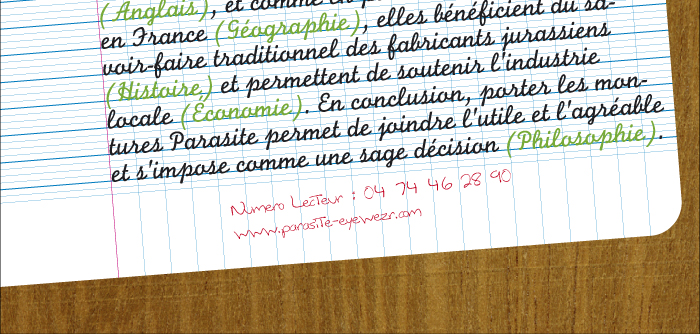 (Anglais), et comme
en France (Géographie), elles bénéficient du sa-
voir-faire traditionnel des fabricants jurassiens
(Histoire,) et permettent de soutenir l'industrie
locale (Économie). En conclusion, porter les mon-
tures Parasite permet de joindre l'utile et l'agréable
et s'impose comme une sage décision (Philosophie).
Numero Lecteur : 04 74 46 28 90
www.parasite-eyewear.com